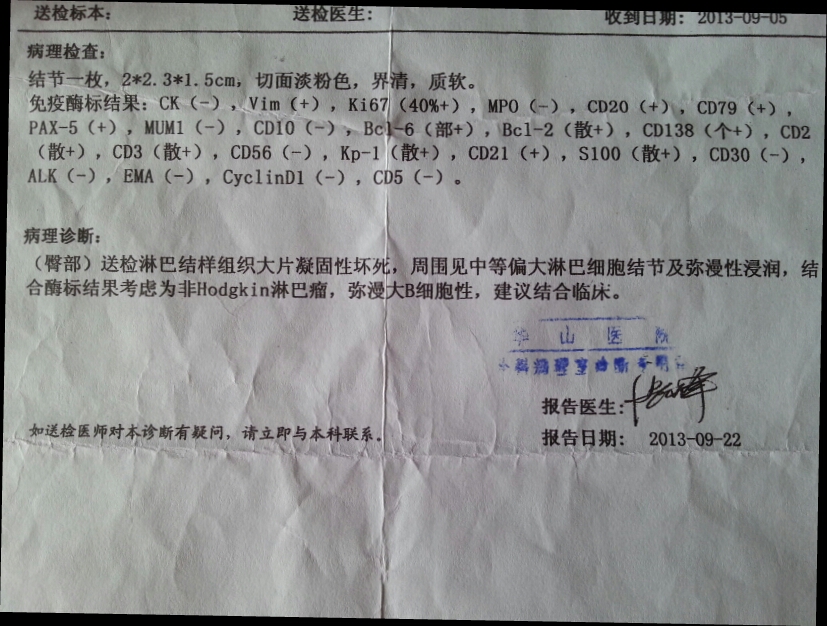 送检标本: 送检医生: 收到日期: 2013-09-05
病理检查:
结节一枚，2*2.3*1.5cm，切面淡粉色，界清，质软。
免疫酶标结果：CK（-），Vim（+），Ki67（40%+），MPO（-），CD20（+），CD79（+），
PAX-5（+），MUM1（-），CD10（-），Bcl-6（部+），Bcl-2（散+），CD138（个+），CD2
（散+），CD3（散+），CD56（-），Kp-1（散+），CD21（+），S100（散+），CD30（-），
ALK（-），EMA（-），CyclinD1（-），CD5（-）。
病理诊断:
（臀部）送检淋巴结样组织大片凝固性坏死，周围见中等偏大淋巴细胞结节及弥漫性浸润，结
合酶标结果考虑为非Hodgkin淋巴瘤，弥漫大B细胞性，建议结合临床。
山医院
报告医生:
如送检医师对本诊断有疑问，请立即与本科联系。
报告日期: 2013-09-22